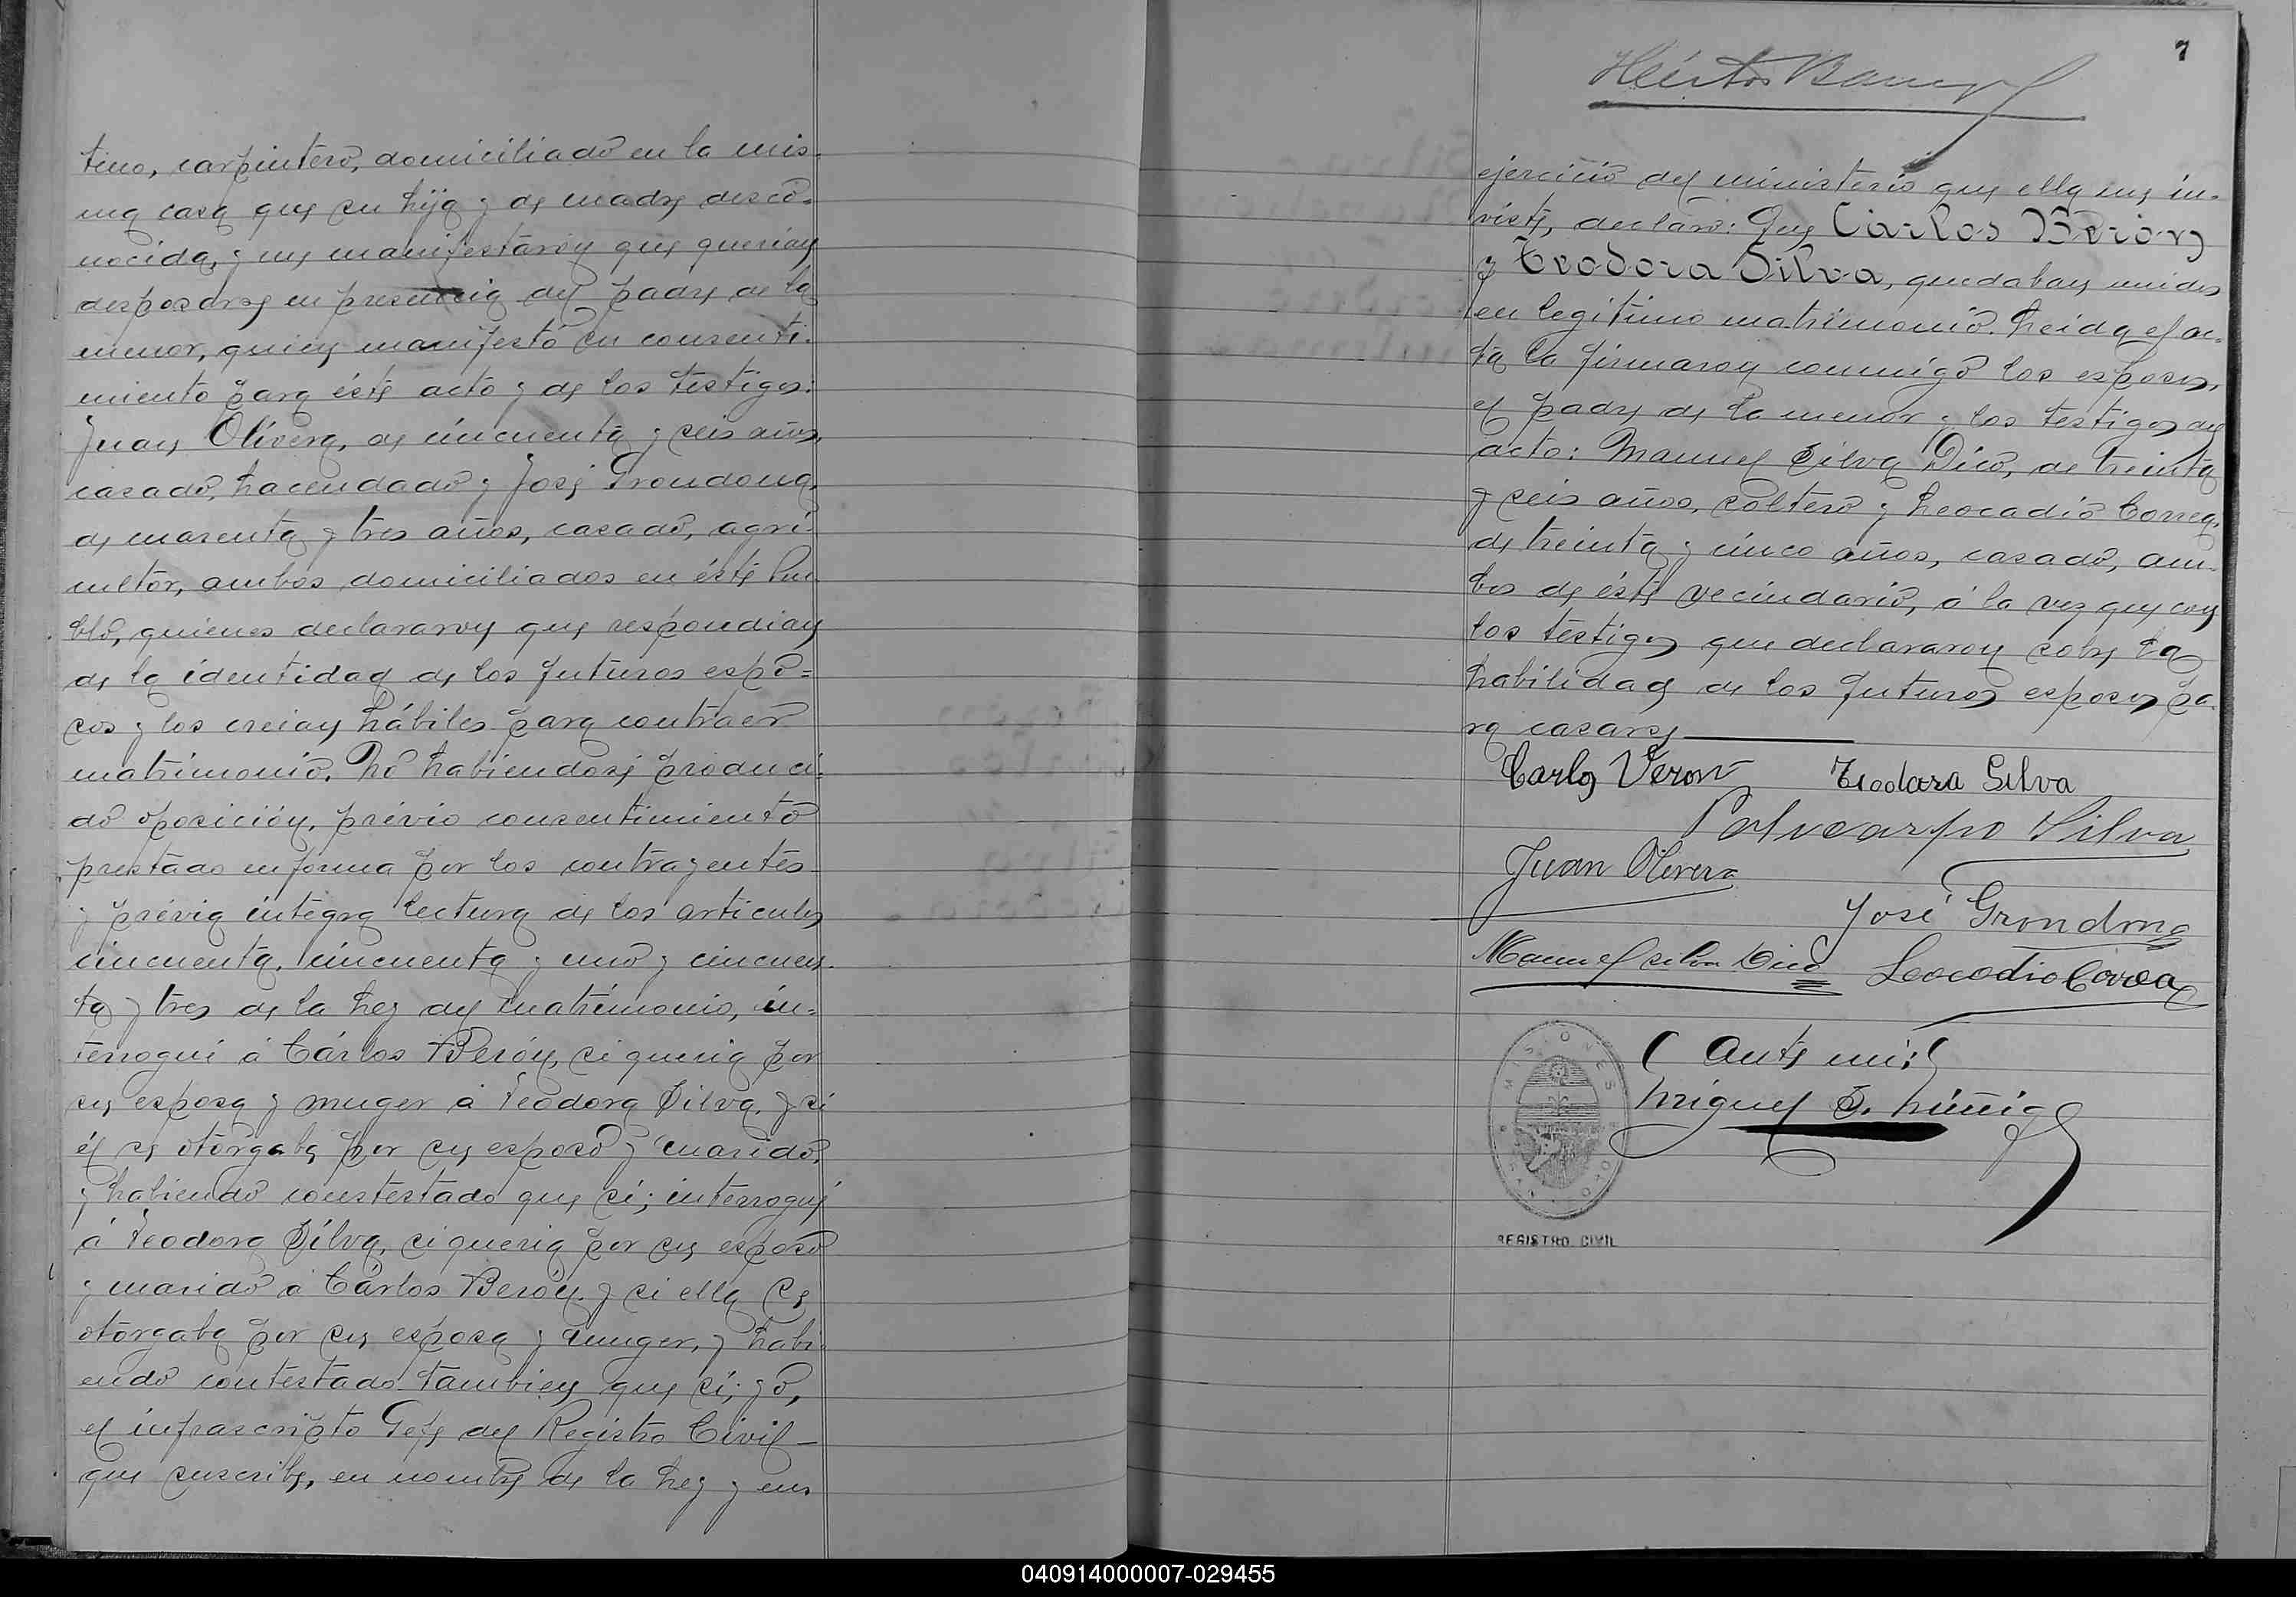 tino, carpintero, domiciliado en la mis-
ma casa que su hija y de madre desco-
nocida, y me manifestaron que querian
desposarse en presencia del padre de la
menor, quien manifestó su consenti-
miento para éste acto y de los testigos:
Juan Olivera, de cincuenta y seis años,
casado, hacendado y José Grondona,
de cuarenta y tres años, casado, agri-
cultor, ambos domiciliados en éste Pue-
blo, quienes declararon que respondian
de la identidad de los futuros espo=
sos y los creian hábiles para contraer
matrimonio. No habiendose produci-
do oposición, prévio consentimiento
prestado en forma por los contrayentes
y prévia integra lectura de los articulos
cincuenta, cincuenta y uno y cincuen-
ta y tres de la Ley de matrimonio, in-
terrogué á Cárlos Berón, si queria por
su esposa y muger á Teodora Silva, y si
él se otorgaba por su esposo y marido,
y habiendo constestado que sí; interrogué
á Teodora Silva, si queria por su esposo
y marido á Cárlos Berón y si ella se
otorgaba por su esposa y muger, y habi-
endo contestado tambien que sí; yo,
el infrascripto Gefe del Registro Civil
que suscribe, en nombre de la Ley y en
7
Héctor
ejercicio del ministerio que ella me in-
viste, declaro: Que Carlos Berón
y Teodora Silva, quedaban unidos
en legitimo matrimonio. Leida el ac-
ta la firmaron conmigo los esposos,
el padre de la menor y los testigos del
acto: Manuel Silva Dico, de treinta
y seis años, soltero y Leocadio Correa,
de treinta y cinco años, casado, am-
bos de éste vecindario, á la vez que con
los testigos que declararon sobre la
habilidad de los futuros esposos pa-
ra casarse
Carlos Veron Teodora Silva
Policarpo Silva
Juan Olivera
José Grondona
Manuel Silva Dico Leocadio Correa
Ante mi:
Miguel S. Núñez
MISIONES
REGISTRO CIVIL
040914000007-029455